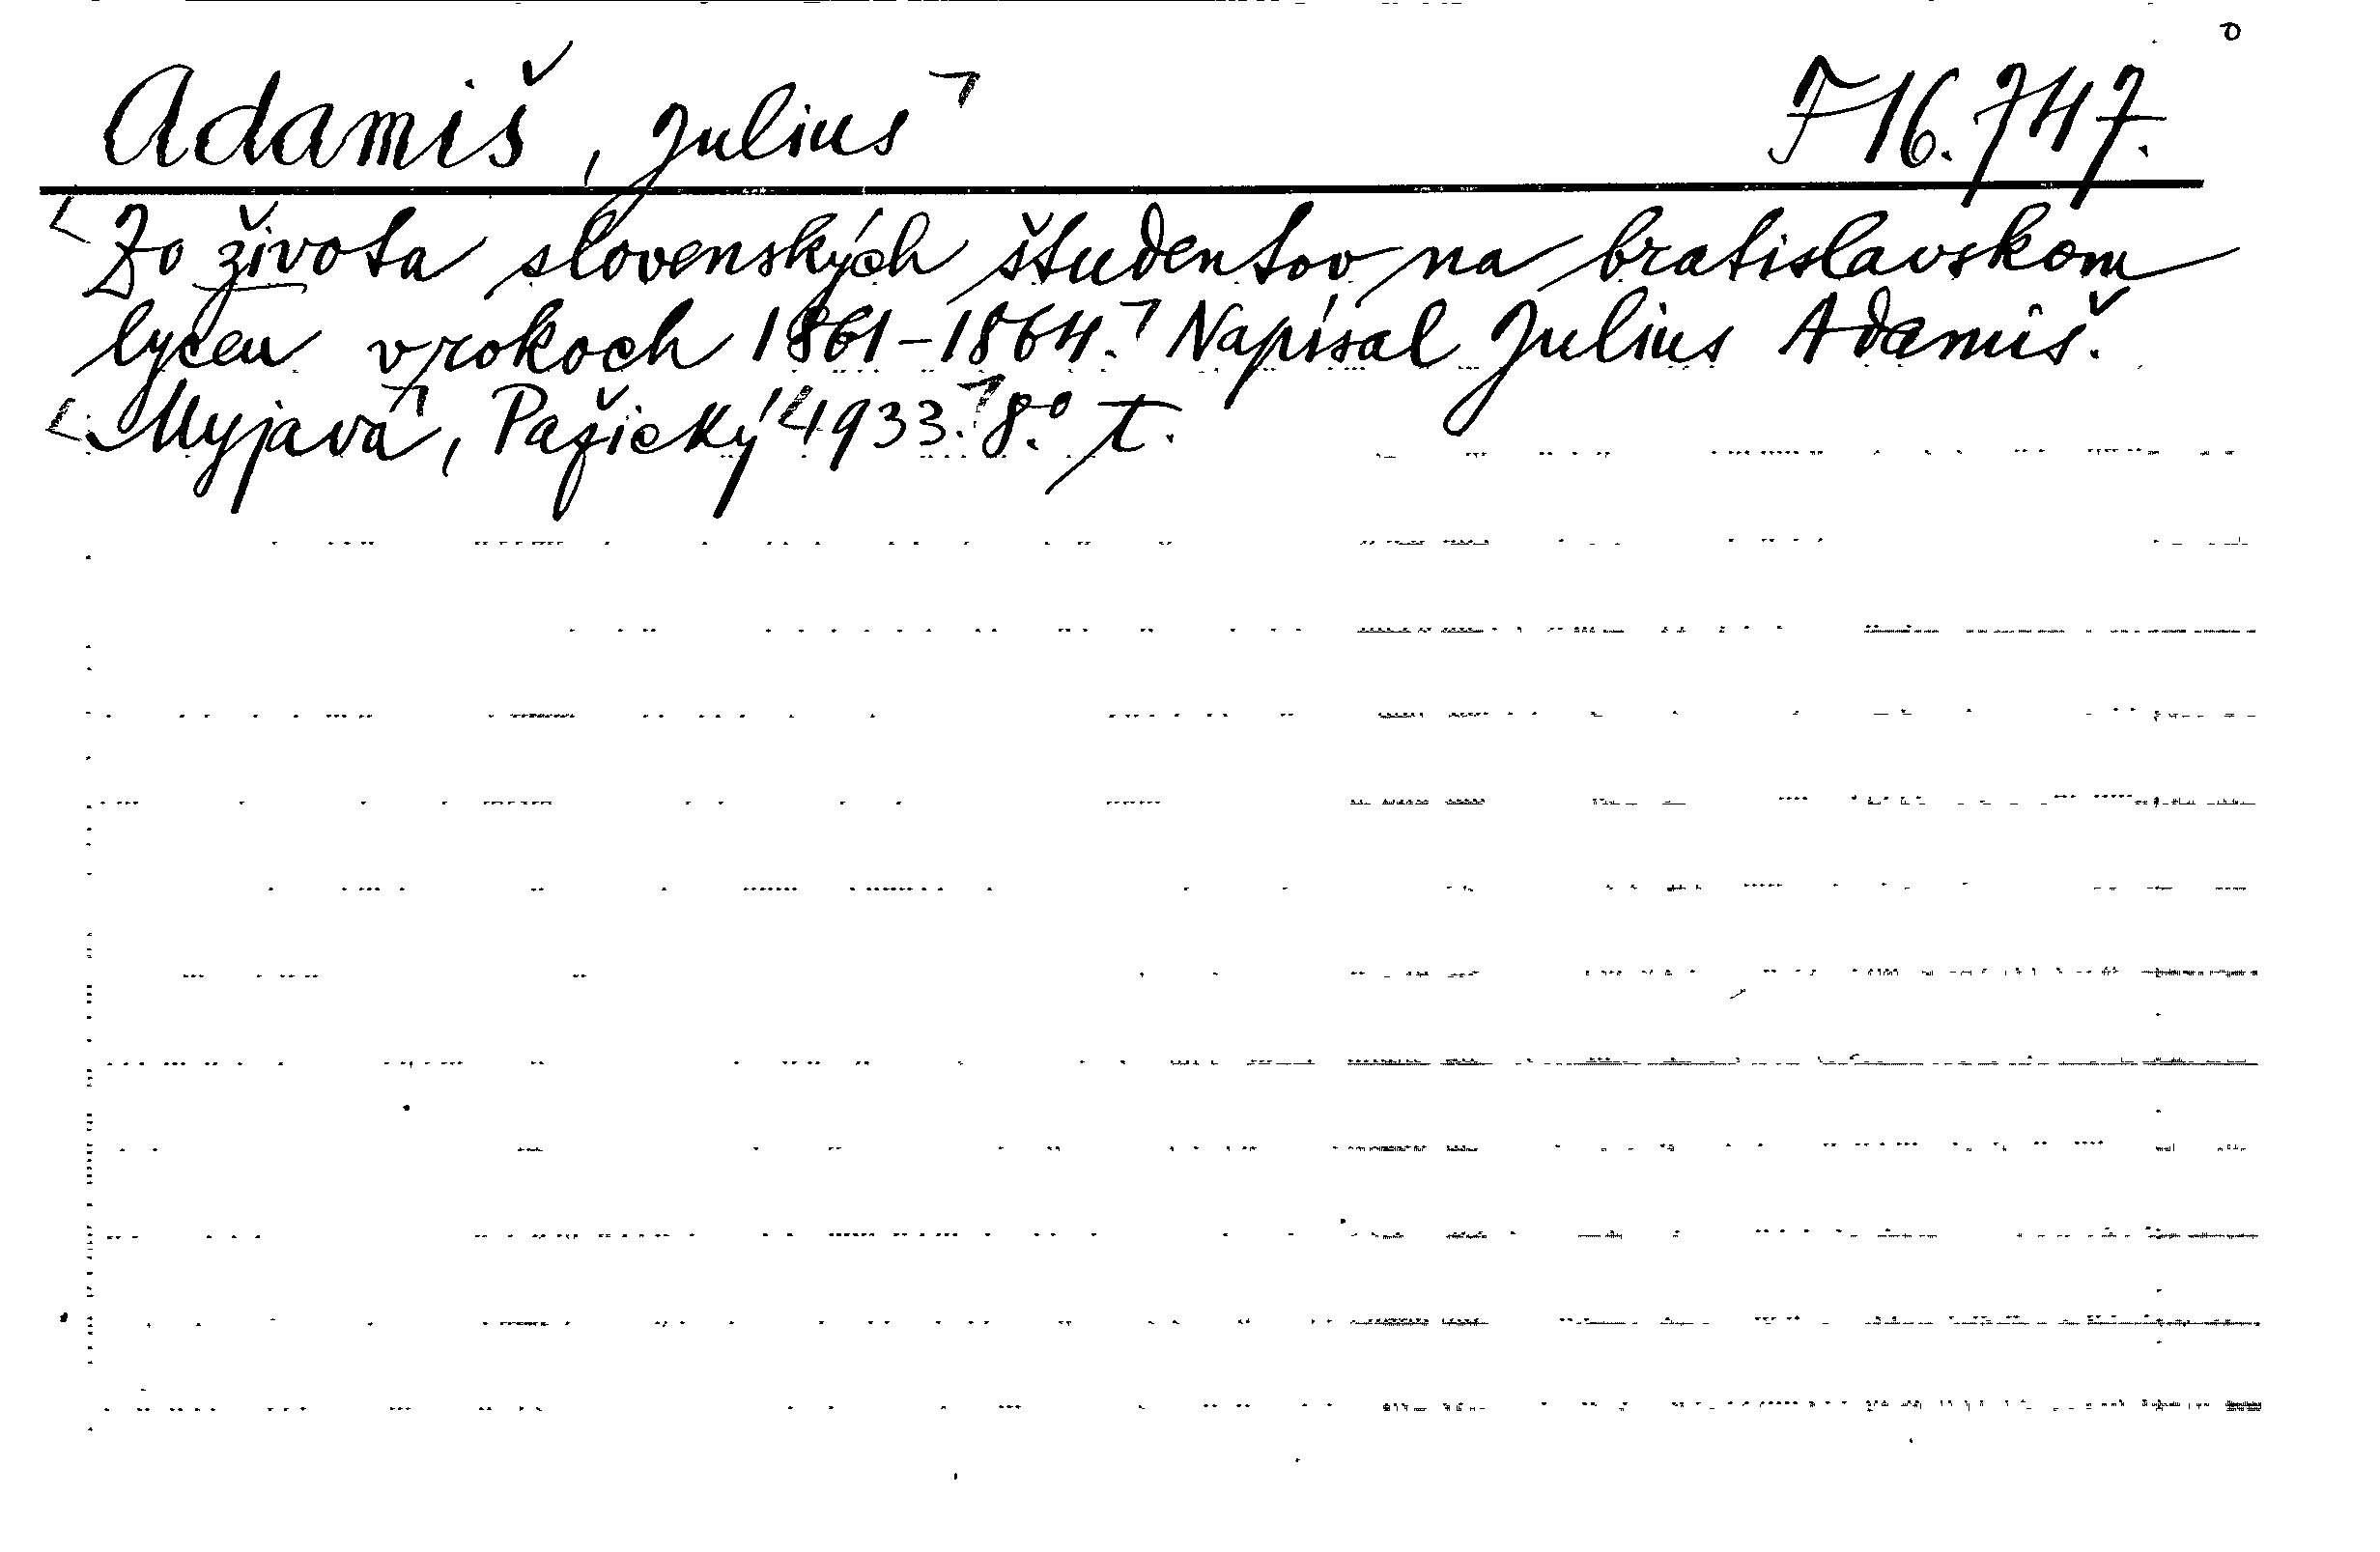 Adamiš, Julius F 16.747.
Zo života slovenských študentov na bratislavskom
lyceu v rokoch 1861-1864. Napísal Julius Adamiš.
Myjava, Pažický 1933. 8.° T.